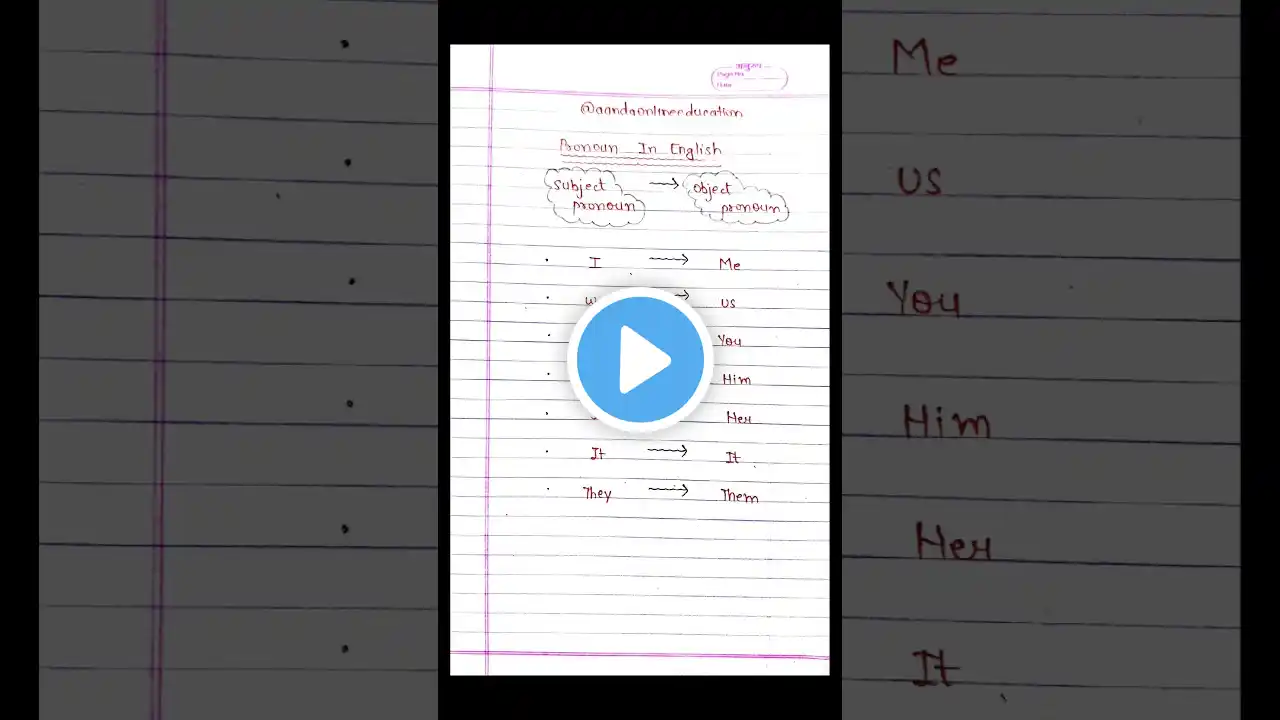 Page No.
@aandaonlineeducation
Pronoun In English
subject → object
pronoun pronoun
• I → Me
• → US
• You
• Him
• Her
• It → It
• They → Them
Me
US
You
Him
Her
It